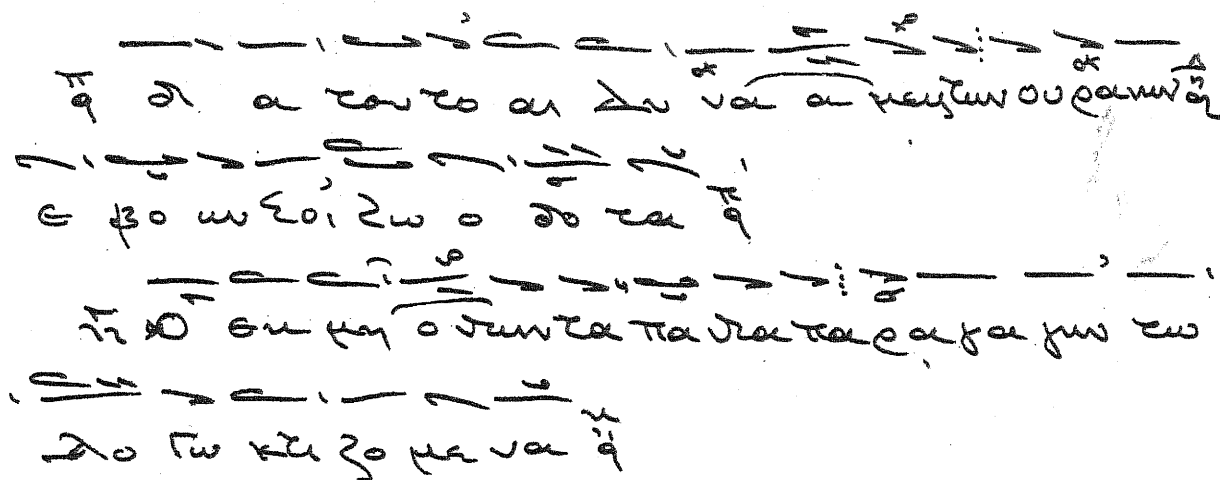 δι α του το αι δυ να α μεις των ου ρα νων
ε βο ων σοι ζω ο δο τα
Ο εκ μη ο ντων τα πα ντα πα ρα γα γων τω
λο γω κτι ζο με να